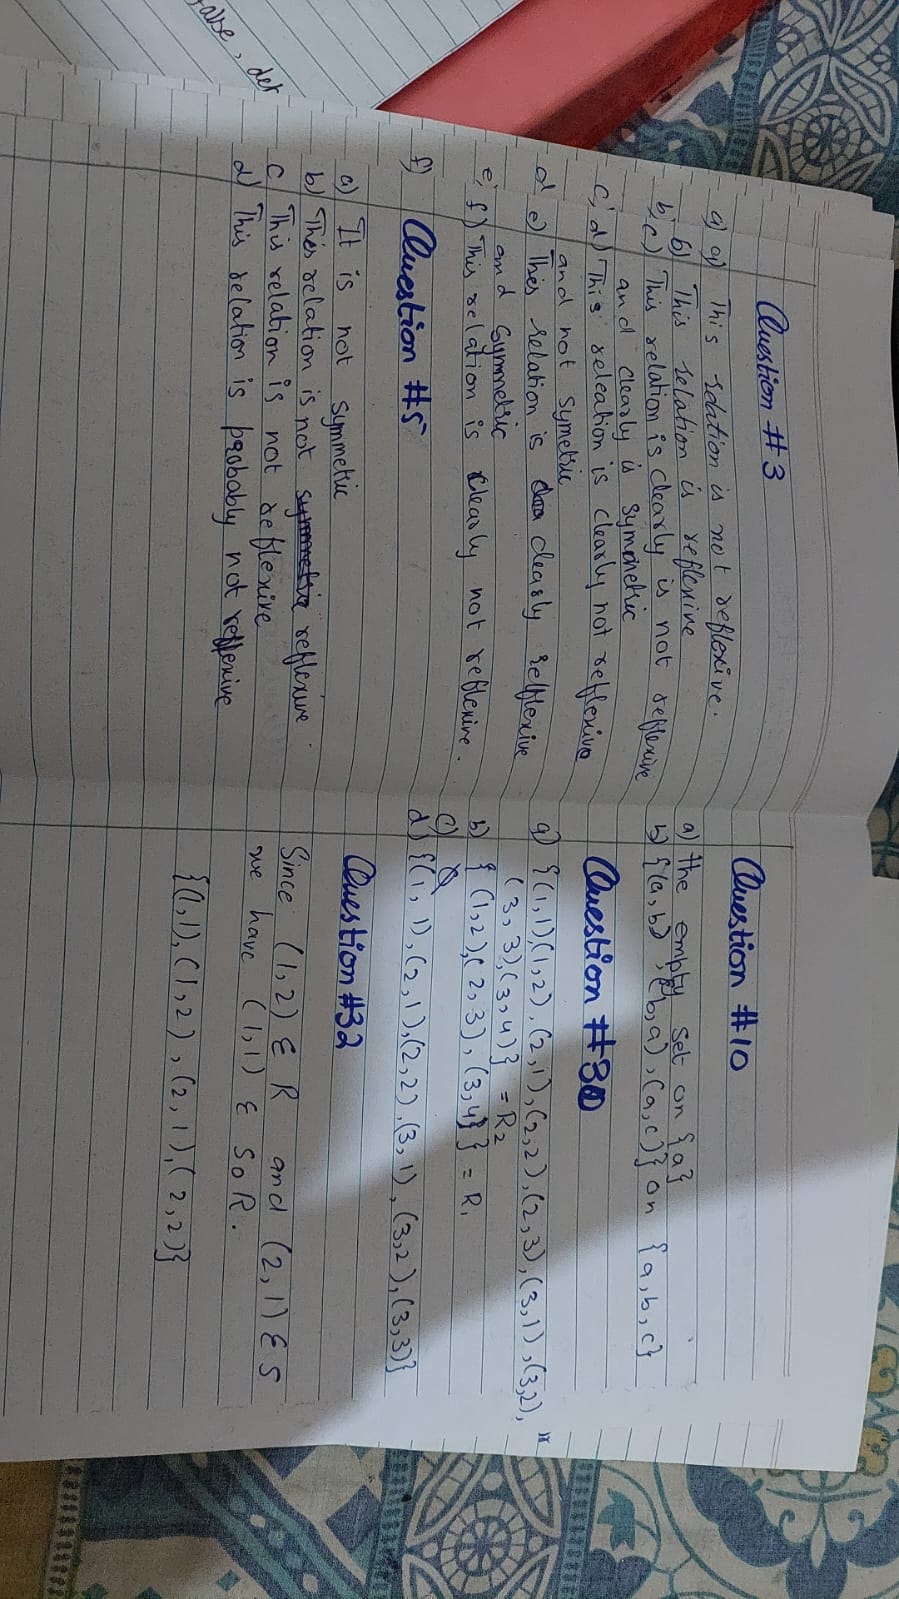 Question #3
a) a) This relation is not reflexive.
b) This relation is reflexive
b, c) This relation is clearly is not reflexive
and clearly is symmetric
c, d) This releation is clearly not reflexive
and not symetric
d e) This relation is clearly relflexive
and Symmetric
e, f) This relation is clearly not reflexive.
f)
Question #5
a) It is not symmetric
b) This relation is not symmetric reflexive
c This relation is not reflexive
d) This relation is probably not reflexive
false, det
Question #10
a) the empty set on {a}
b) {(a,b), (b,a), (a,c)} on {a,b,c}
Question #30
a) {(1,1)(1,2), (2,1), (2,2), (2,3), (3,1), (3,2),
(3,3), (3,4)} = R2
b) { (1,2),( 2,3), (3,4} } = R1
c)
d) {(1, 1), (2,1), (2,2), (3,1), (3,2), (3,3)}
Question #32
Since (1,2) ε R and (2,1) ε S
we have (1,1) ε SoR.
{(1,1), (1,2), (2,1), (2,2)}